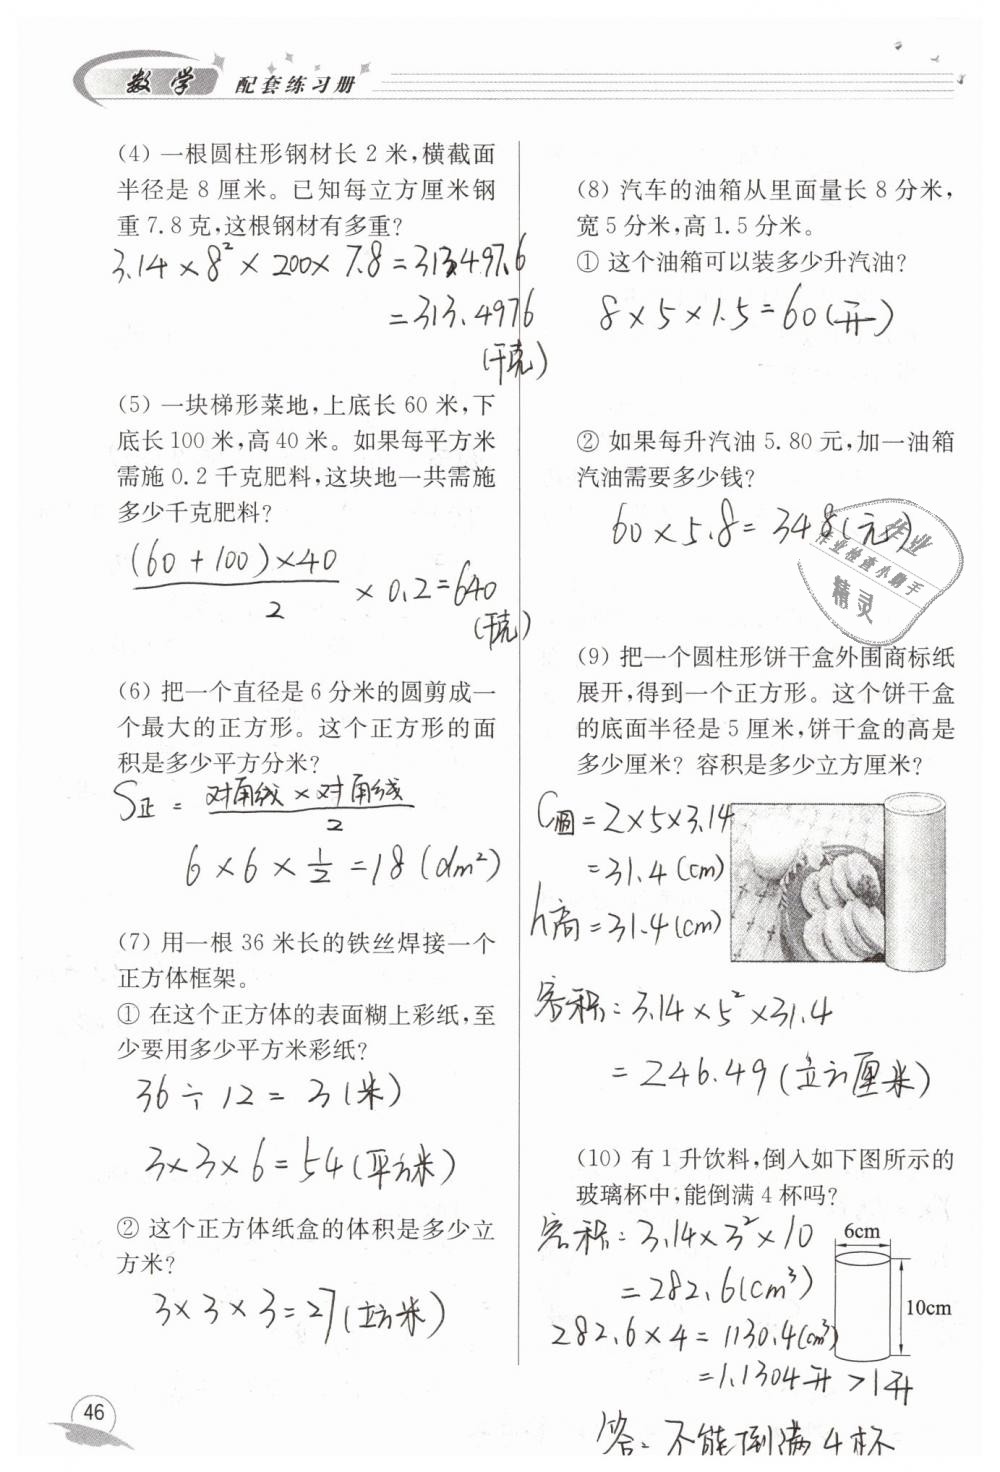 数学 配套练习册
(4) 一根圆柱形钢材长 2 米,横截面
半径是 8 厘米。已知每立方厘米钢
重 7.8 克,这根钢材有多重?
3.14×8²×200×7.8=313497.6
=313.4976
(千克)
(5) 一块梯形菜地,上底长 60 米,下
底长 100 米,高 40 米。如果每平方米
需施 0.2 千克肥料,这块地一共需施
多少千克肥料?
(60+100)×40
2
×0.2=640
(千克)
(6) 把一个直径是 6 分米的圆剪成一
个最大的正方形。这个正方形的面
积是多少平方分米?
S正=
对角线×对角线
2
6×6×1/2=18(dm²)
(7) 用一根 36 米长的铁丝焊接一个
正方体框架。
① 在这个正方体的表面糊上彩纸,至
少要用多少平方米彩纸?
36÷12=3(米)
3×3×6=54(平方米)
② 这个正方体纸盒的体积是多少立
方米?
3×3×3=27(立方米)
46
(8) 汽车的油箱从里面量长 8 分米,
宽 5 分米,高 1.5 分米。
① 这个油箱可以装多少升汽油?
8×5×1.5=60(升)
② 如果每升汽油 5.80 元,加一油箱
汽油需要多少钱?
60×5.8=348(元)
作业
作业检查小助手
精灵
(9) 把一个圆柱形饼干盒外围商标纸
展开,得到一个正方形。这个饼干盒
的底面半径是 5 厘米,饼干盒的高是
多少厘米?容积是多少立方厘米?
C圆=2×5×3.14
=31.4(cm)
h高=31.4(cm)
容积:3.14×5²×31.4
=246.49(立方厘米)
(10) 有 1 升饮料,倒入如下图所示的
玻璃杯中,能倒满 4 杯吗?
容积:3.14×3²×10
=282.6(cm³)
282.6×4=1130.4(cm³)
=1.1304升>1升
答:不能倒满4杯
6cm
10cm